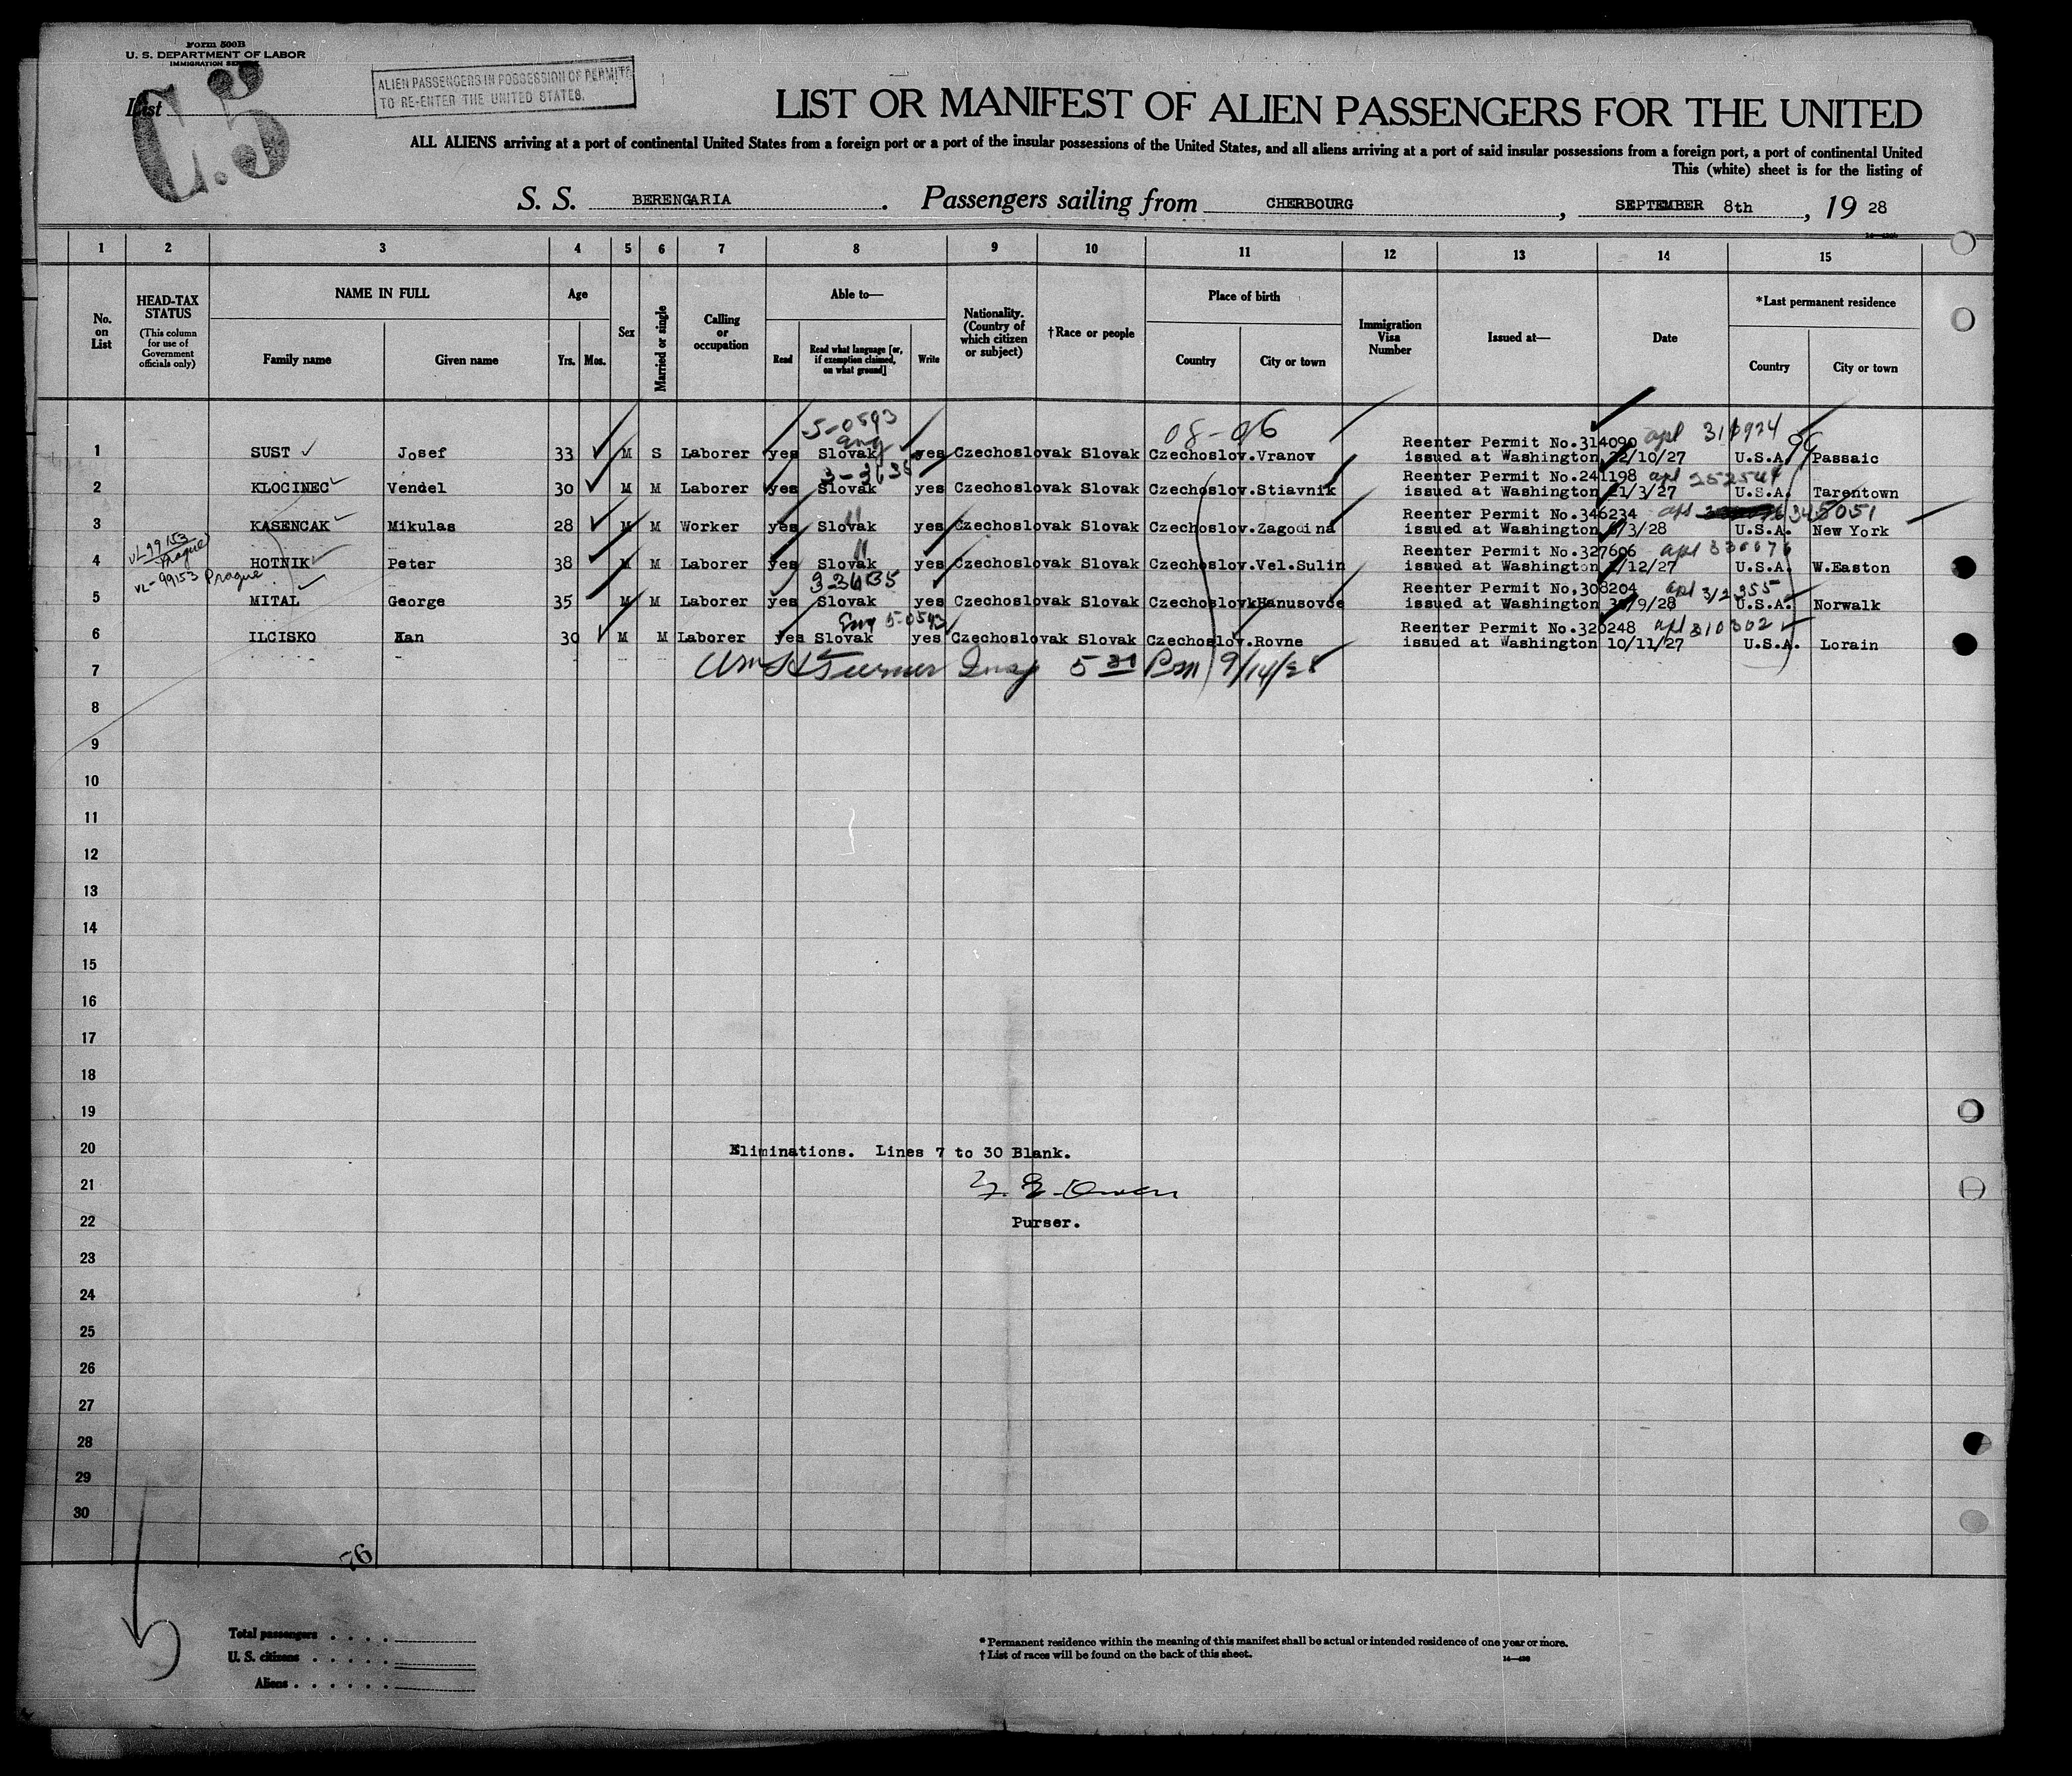 Form 500B
U. S. DEPARTMENT OF LABOR
IMMIGRATION SERVICE
List
C.5
ALIEN PASSENGERS IN POSSESSION OF PERMITS
TO RE-ENTER THE UNITED STATES.
LIST OR MANIFEST OF ALIEN PASSENGERS FOR THE UNITED
ALL ALIENS arriving at a port of continental United States from a foreign port or a port of the insular possessions of the United States, and all aliens arriving at a port of said insular possessions from a foreign port, a port of continental United
This (white) sheet is for the listing of
S. S. BERENGARIA. Passengers sailing from CHERBOURG, SEPTEMBER 8th, 19 28
1 2 3 4 5 6 7 8 9 10 11 12 13 14 15
No. on List
HEAD-TAX STATUS
(This column for use of Government officials only)
NAME IN FULL
Family name Given name
Age
Yrs. Mos.
Sex
Married or single
Calling or occupation
Able to—
Read
Read what language [or, if exemption claimed, on what ground]
Write
Nationality. (Country of which citizen or subject)
†Race or people
Place of birth
Country City or town
Immigration Visa Number
Issued at—
Date
*Last permanent residence
Country City or town
5-0593
08-06
Reenter Permit No.314090 apl
1 SUST Josef 33 M S Laborer yes Slovak yes Czechoslovak Slovak Czechoslov.Vranov issued at Washington 22/10/27 U.S.A. Passaic
Reenter Permit No.241198 apl 252544
2 KLOCINEC Vendel 30 M M Laborer yes Slovak yes Czechoslovak Slovak Czechoslov.Stiavnik issued at Washington 21/3/27 U.S.A. Tarentown
Reenter Permit No.346234 apl 345051
3 KASENCAK Mikulas 28 M M Worker yes Slovak yes Czechoslovak Slovak Czechoslov.Zagodina issued at Washington /3/28 U.S.A. New York
VL 99153
Prague
Reenter Permit No.327606 apl 330676
4 HOTNIK Peter 38 M M Laborer yes Slovak yes Czechoslovak Slovak Czechoslov.Vel.Sulin issued at Washington /12/27 U.S.A. W.Easton
VL-99153 Prague
Reenter Permit No.308204 apl 312355
5 MITAL George 35 M M Laborer yes Slovak yes Czechoslovak Slovak CzechoslovkHanusovce issued at Washington 30/9/28 U.S.A. Norwalk
Eng 5-0593
Reenter Permit No.320248 apl 310302
6 ILCISKO Jan 30 M M Laborer yes Slovak yes Czechoslovak Slovak Czechoslov.Rovne issued at Washington 10/11/27 U.S.A. Lorain
7 Wm H Turner Insp 9/14/28
8
9
10
11
12
13
14
15
16
17
18
19
20 Eliminations. Lines 7 to 30 Blank.
21
22 Purser.
23
24
25
26
27
28
29
30
76
Total passengers
U. S. citizens
Aliens
* Permanent residence within the meaning of this manifest shall be actual or intended residence of one year or more.
† List of races will be found on the back of this sheet.